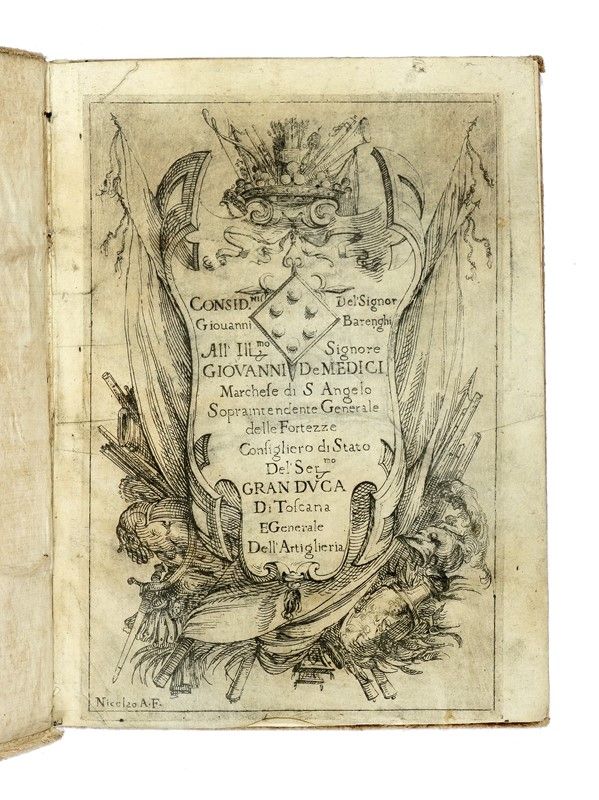 CONSID.NI Del Signor
Giovanni Barenghi
All' Ill.mo Signore
GIOVANNI De MEDICI
Marchese di S Angelo
Sopraintendente Generale
delle Fortezze
Consigliero di Stato
Del Ser.mo
GRAN DVCA
Di Toscana
E Generale
Dell' Artiglieria
Nicolao A. F.